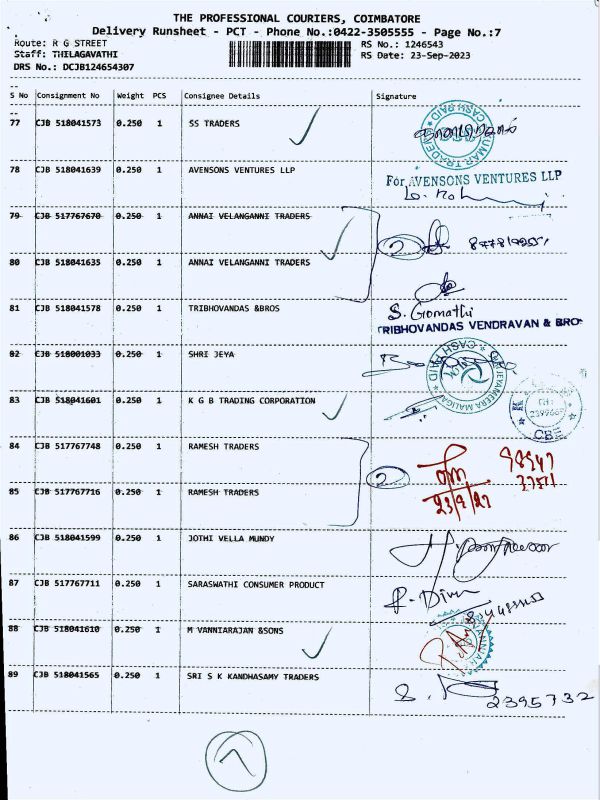 THE PROFESSIONAL COURIERS, COIMBATORE
Delivery Runsheet - PCT - Phone No.:0422-3505555 - Page No.:7
Route: R G STREET RS No.: 1246543
Staff: THILAGAVATHI RS Date: 23-Sep-2023
DRS No.: DCJB124654307
S No Consignment No Weight PCS Consignee Details Signature
77 CJB 518041573 0.250 1 SS TRADERS
CASH PAID
78 CJB 518041639 0.250 1 AVENSONS VENTURES LLP
For AVENSONS VENTURES LLP
79 CJB 517767670 0.250 1 ANNAI VELANGANNI TRADERS
2
80 CJB 518041635 0.250 1 ANNAI VELANGANNI TRADERS
81 CJB 518041578 0.250 1 TRIBHOVANDAS &BROS S. Gomathi
TRIBHOVANDAS VENDRAVAN & BRO
82 CJB 518001033 0.250 1 SHRI JEYA
CASH PAID
83 CJB 518041601 0.250 1 K G B TRADING CORPORATION
CBE
84 CJB 517767748 0.250 1 RAMESH TRADERS
2
85 CJB 517767716 0.250 1 RAMESH TRADERS
86 CJB 518041599 0.250 1 JOTHI VELLA MUNDY
87 CJB 517767711 0.250 1 SARASWATHI CONSUMER PRODUCT
88 CJB 518041610 0.250 1 M VANNIARAJAN &SONS
89 CJB 518041565 0.250 1 SRI S K KANDHASAMY TRADERS
2395732
7